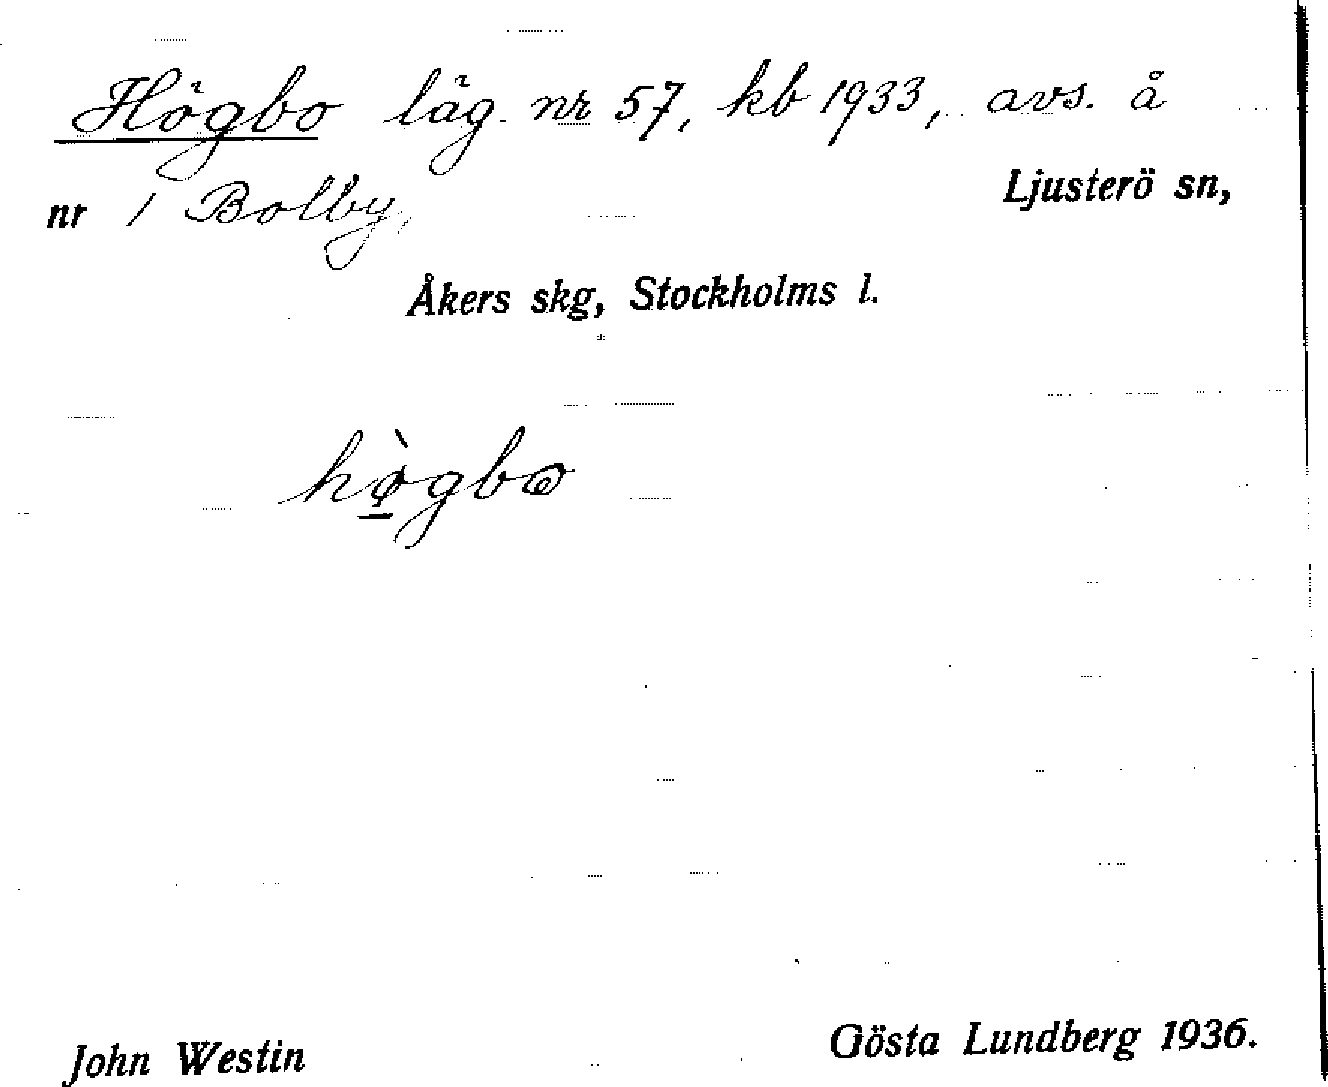 Högbo läg. nr 57, kb 1933, avs. å
nr 1 Bolby, Ljusterö sn,
Åkers skg, Stockholms l.
hø̱̀gbo
John Westin Gösta Lundberg 1936.